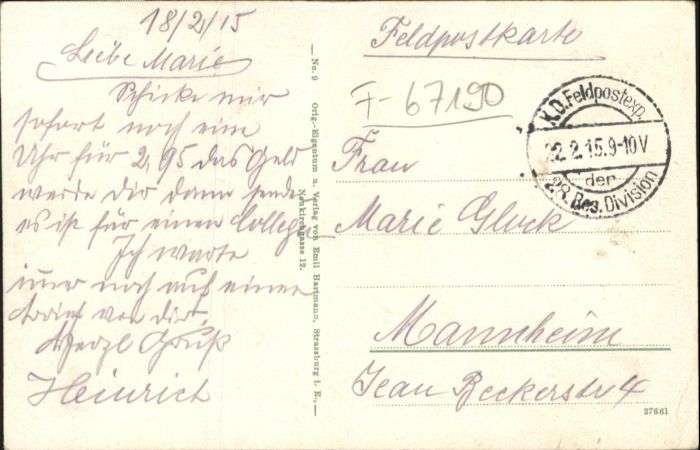 18/2/15
Liebe Marie
Schicke mir
sofort noch eine
Uhr für 2,95 das Geld
werde Dir dann senden
es ist für einen Collegen
Ich warte
immer noch auf einen
Brief von Dir.
Herzl Gruß
Heinrich
No. 9 Orig.-Eigentum u. Verlag von Emil Hartmann, Strassburg i. E.,
Neukirchgasse 12.
Feldpostkarte
F-67190
K.D. Feldpostexp.
22.2.15.9-10V
der
28. Res. Division
Frau
Marie Gluck
Mannheim
Jean Beckerstr 4
37661